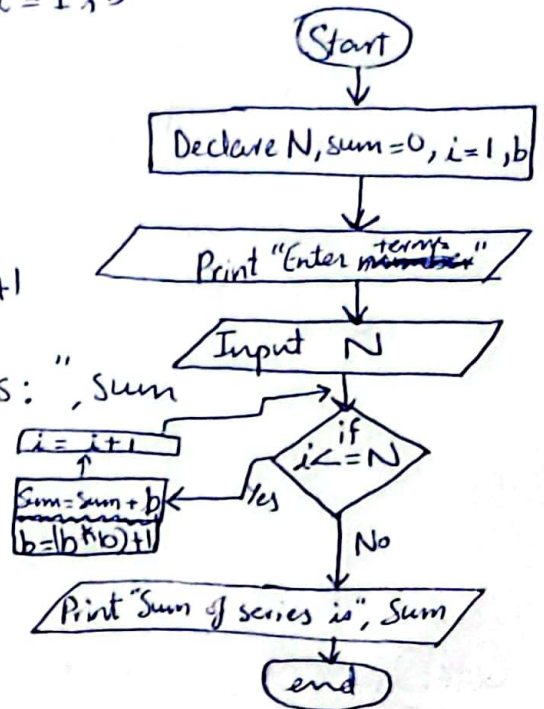 = 1, 5
Start
Declare N, sum=0, i=1, b
Print "Enter terms"
+1
Input N
s: ", Sum
if
i<=N
i = i+1
Yes
Sum=Sum + b
b=(b*b)+1
No
Print "Sum of series is", Sum
end